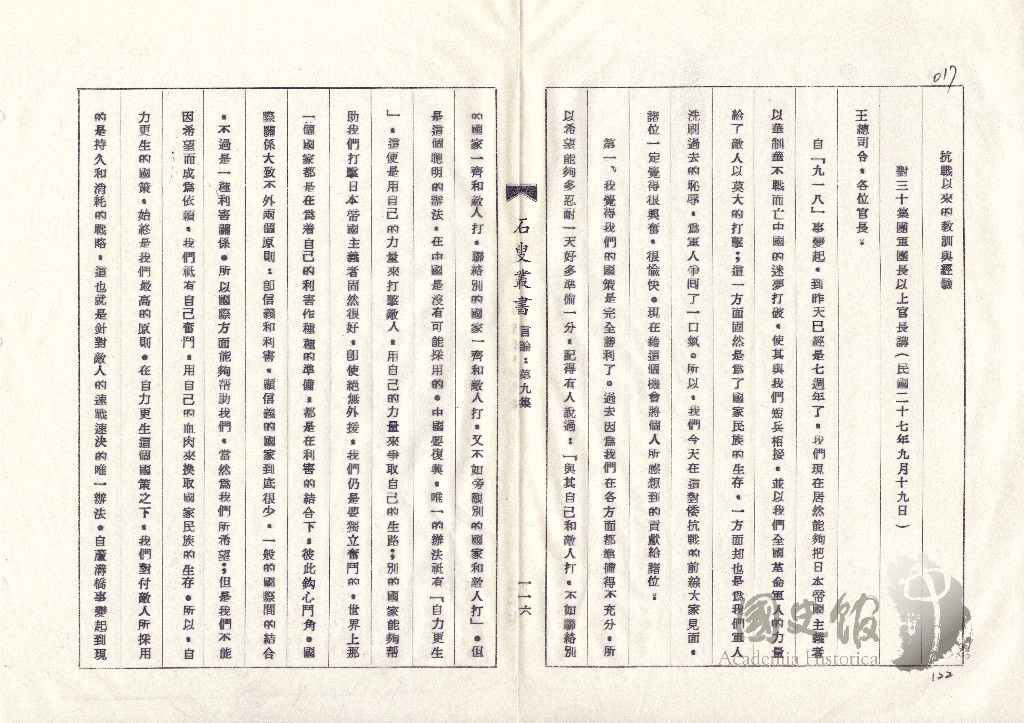 017
抗戰以來的教訓與經驗
對三十集團軍團長以上官長講（民國二十七年九月十九日）
王總司令、各位官長：
自『九一八』事變起，到昨天已經是七週年了。我們現在居然能夠把日本帝國主義者
以華制華不戰而亡中國的迷夢打破，使其與我們短兵相接，並以我們全國革命軍人的力量
給了敵人以莫大的打擊；這一方面固然是爲了國家民族的生存，一方面却也是爲我們軍人
洗刷過去的恥辱，爲軍人爭回了一口氣。所以，我們今天在這對倭抗戰的前線大家見面，
諸位一定覺得很興奮，很愉快。現在藉這個機會將個人所感想到的貢獻給諸位：
第一、我覺得我們的國策是完全勝利了。過去因爲我們在各方面都準備得不充分，所
以希望能夠多忍耐一天好多準備一分。記得有人說過：『與其自己和敵人打，不如聯絡別
石叟叢書 言論：第九集 一一六
的國家一齊和敵人打，聯絡別的國家一齊和敵人打，又不如旁觀別的國家和敵人打』。但
是這個聰明的辦法，在中國是沒有可能採用的。中國要復興，唯一的辦法祇有『自力更生
』。這便是用自己的力量來打擊敵人，用自己的力量來爭取自己的生路；別的國家能夠幫
助我們打擊日本帝國主義者固然很好，即使絕無外援，我們仍是要獨立奮鬥的。世界上那
一個國家都是在爲着自己的利害作種種的準備，都是在利害的結合下，彼此鈎心鬥角。國
際關係大致不外兩個原則：即信義和利害。顧信義的國家到底很少，一般的國際間的結合
，不過是一種利害關係。所以國際方面能夠幫助我們，當然爲我們所希望；但是我們不能
因希望而成爲依賴，我們祇有自己奮鬥，用自己的血肉來換取國家民族的生存。所以，自
力更生的國策，始終是我們最高的原則。在自力更生這個國策之下，我們對付敵人所採用
的是持久和消耗的戰略，這也就是針對敵人的速戰速決的唯一辦法。自蘆溝橋事變起到現
國史館
Academia Historica
122